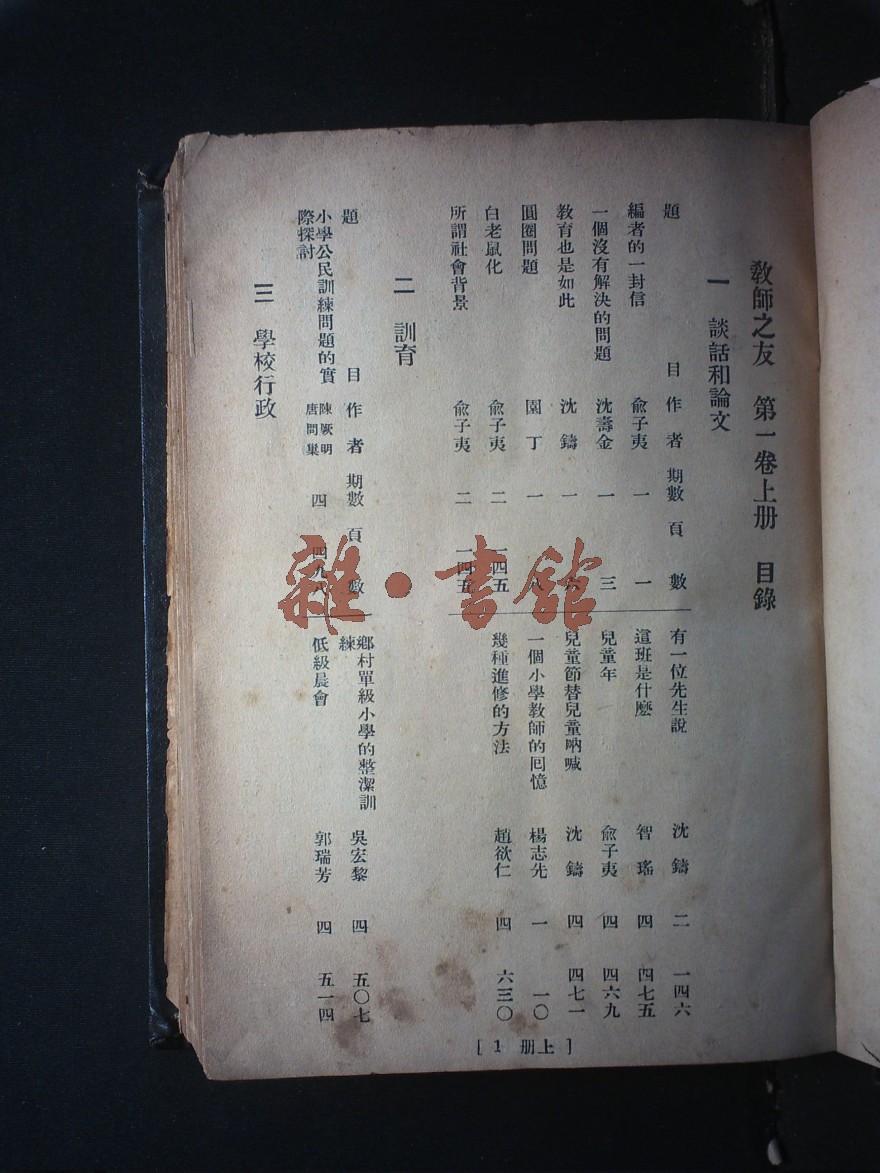 教師之友　第一卷上册　目錄
一　談話和論文
題　目　作者　期數　頁數
編者的一封信　俞子夷　一　一
一個沒有解決的問題　沈壽金　一　三
教育也是如此　沈鑄　一　六
圓圈問題　園丁　一　八
白老鼠化　俞子夷　二　一四五
所謂社會背景　俞子夷　二　一四五
有一位先生說　沈鑄　二　一四六
這班是什麼　智瑤　四　四七五
兒童年　俞子夷　四　四六九
兒童節替兒童吶喊　沈鑄　四　四七一
一個小學教師的囘憶　楊志先　一　一〇
幾種進修的方法　趙欲仁　四　六三〇
二　訓育
題　目　作者　期數　頁數
小學公民訓練問題的實
際探討　陳厥明　唐問巢　四　四九八
鄉村單級小學的整潔訓
練　吳宏黎　四　五〇七
低級晨會　郭瑞芳　四　五一四
三　學校行政
[ 1　册上 ]
雜·書館